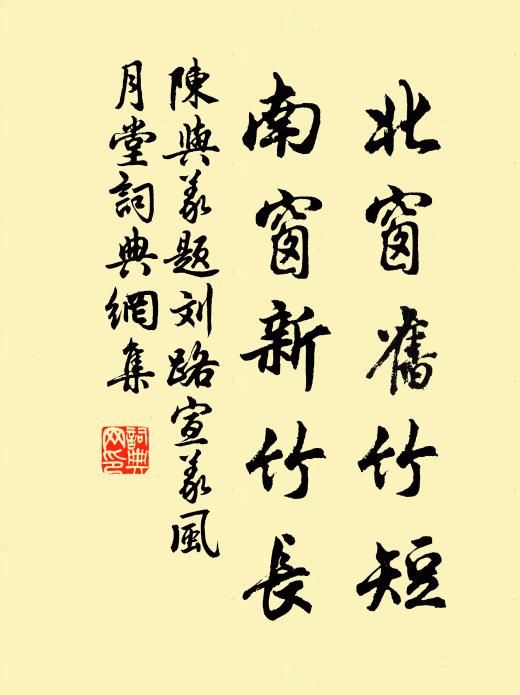 北窗舊竹短
南窗新竹長
陳與義題刘路宣義風
月堂詞典網集
詞典
网印